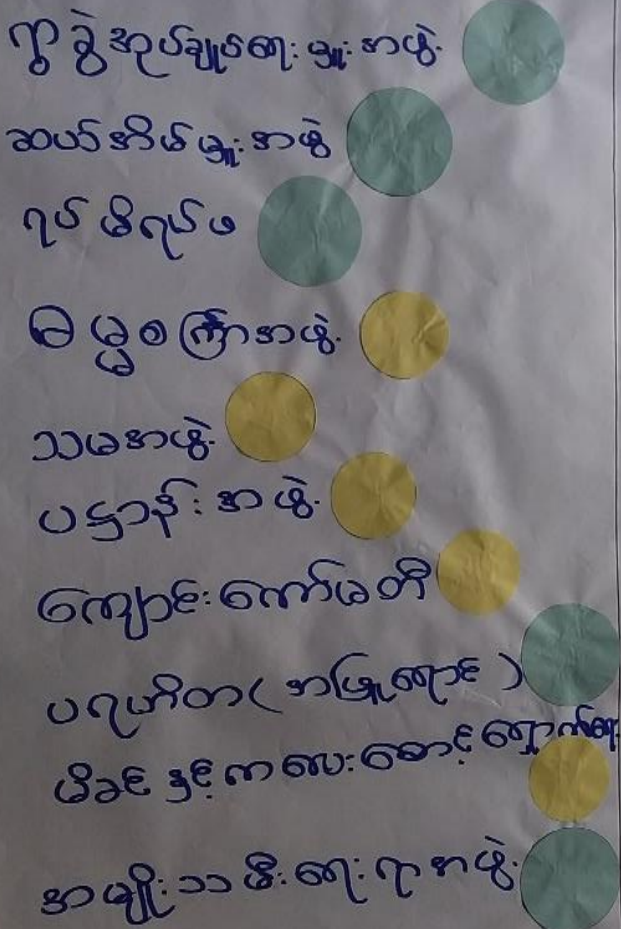 ကွခွဲအုပ်ချုပ်ရေးမှူးအဖွဲ့
ဆယ်အိမ်မှူးအဖွဲ့
ရပ်မိရပ်ဖ
ဓမ္မစကြာအဖွဲ့
သမအဖွဲ့
ပဋ္ဌာန်းအဖွဲ့
ကျောင်းကော်မတီ
ပရဟိတ(အဖြူရောင်)
မိခင်နှင့်ကလေးစောင့်ရှောက်ရေး
အမျိုးသမီးရေးရာအဖွဲ့